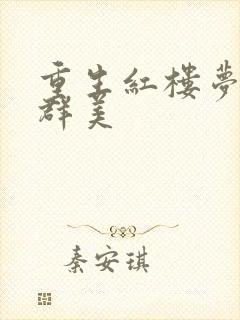 重生紅樓夢
群美
秦安琪